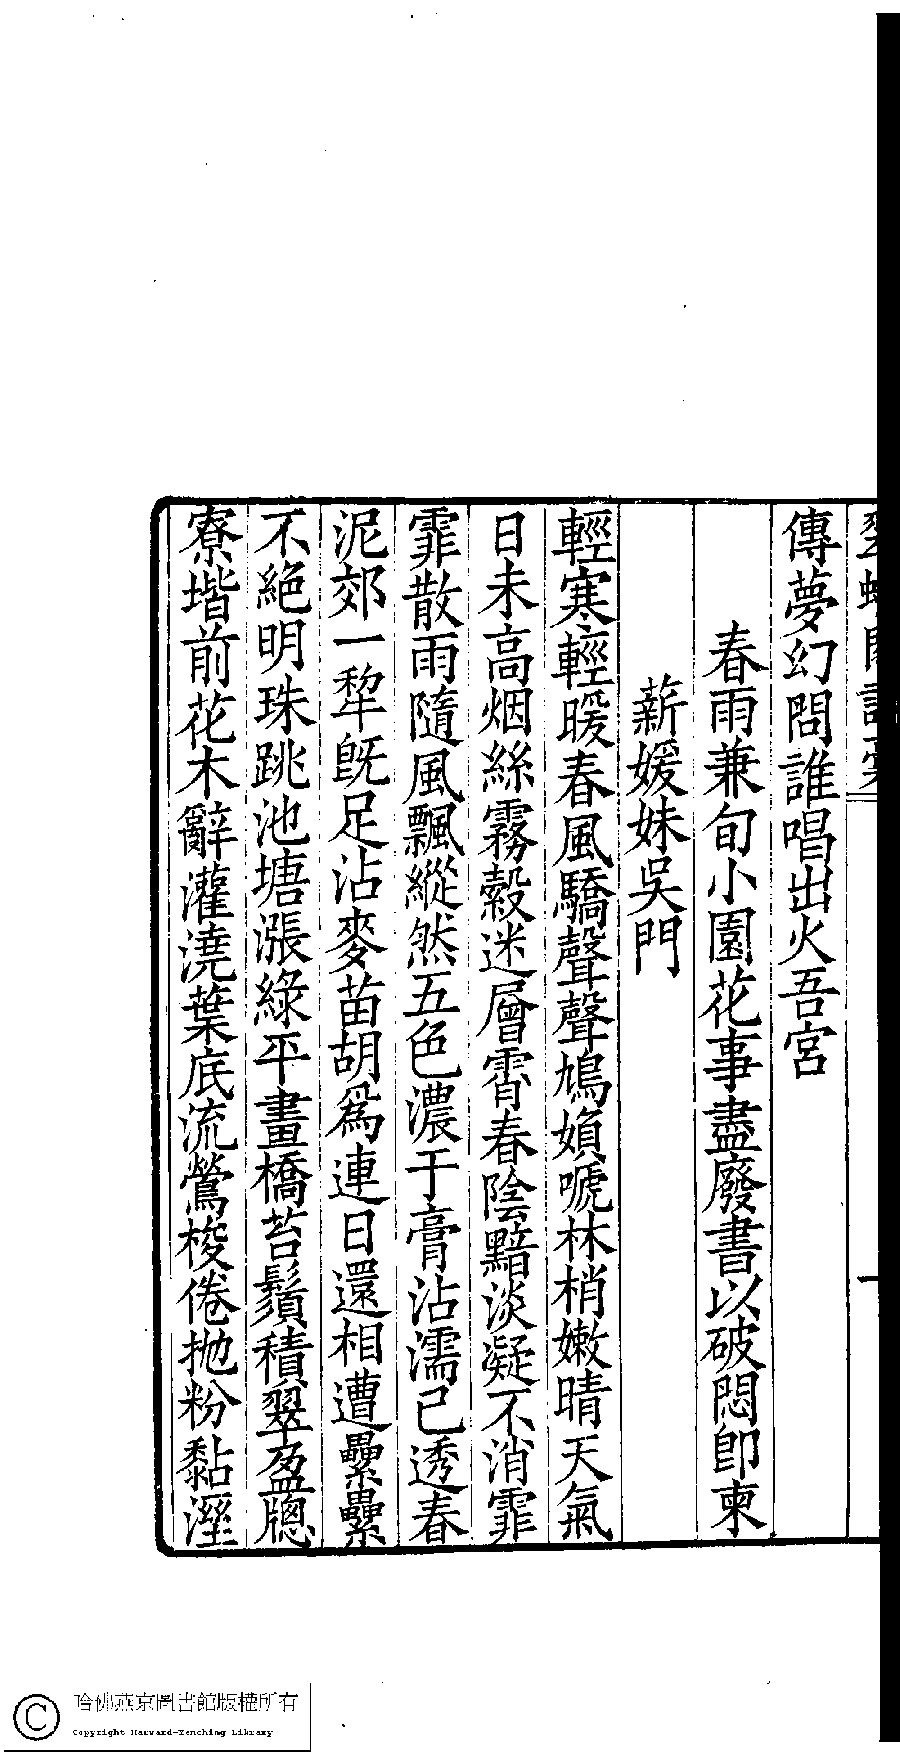 傳夢幻問誰唱出火吾宮
春雨兼旬小園花事盡廢書以破悶卽柬
薪媛妹吳門
輕寒輕暖春風驕聲聲鳩婦嗁林梢嫩晴天氣
日未高烟絲霧縠迷層霄春陰黯淡凝不消霏
霏散雨隨風飄縱然五色濃于膏沾濡已透春
泥郊一犂旣足沾麥苗胡爲連日還相遭纍纍
不絕明珠跳池塘漲綠平畫橋苔鬚積翠盈牕
寮堦前花木辭灌澆葉底流鶯梭倦抛粉黏溼
哈佛燕京圖書館版權所有
Copyright Harvard-Yenching Library